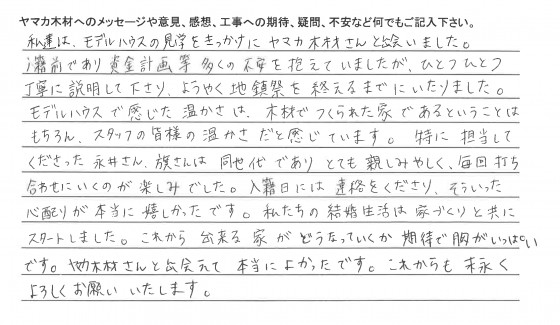 ヤマカ木材へのメッセージや意見、感想、工事への期待、疑問、不安など何でもご記入下さい。
私達は、モデルハウスの見学をきっかけにヤマカ木材さんと出会いました。
入籍前であり資金計画等多くの不安を抱えていましたが、ひとつひとつ
丁寧に説明して下さり、ようやく地鎮祭を終えるまでにいたりました。
モデルハウスで感じた温かさは、木材でつくられた家であるということは
もちろん、スタッフの皆様の温かさだと感じています。特に担当して
くださった永井さん、旗さんは同世代でありとても親しみやしく、毎回打ち
合わせにいくのが楽しみでした。入籍日には連絡をくださり、そういった
心配りが本当に嬉しかったです。私たちの結婚生活は家づくりと共に
スタートしました。これから出来る家がどうなっていくか期待で胸がいっぱい
です。ヤマカ木材さんと出会えて本当によかったです。これからも末永く
よろしくお願いいたします。